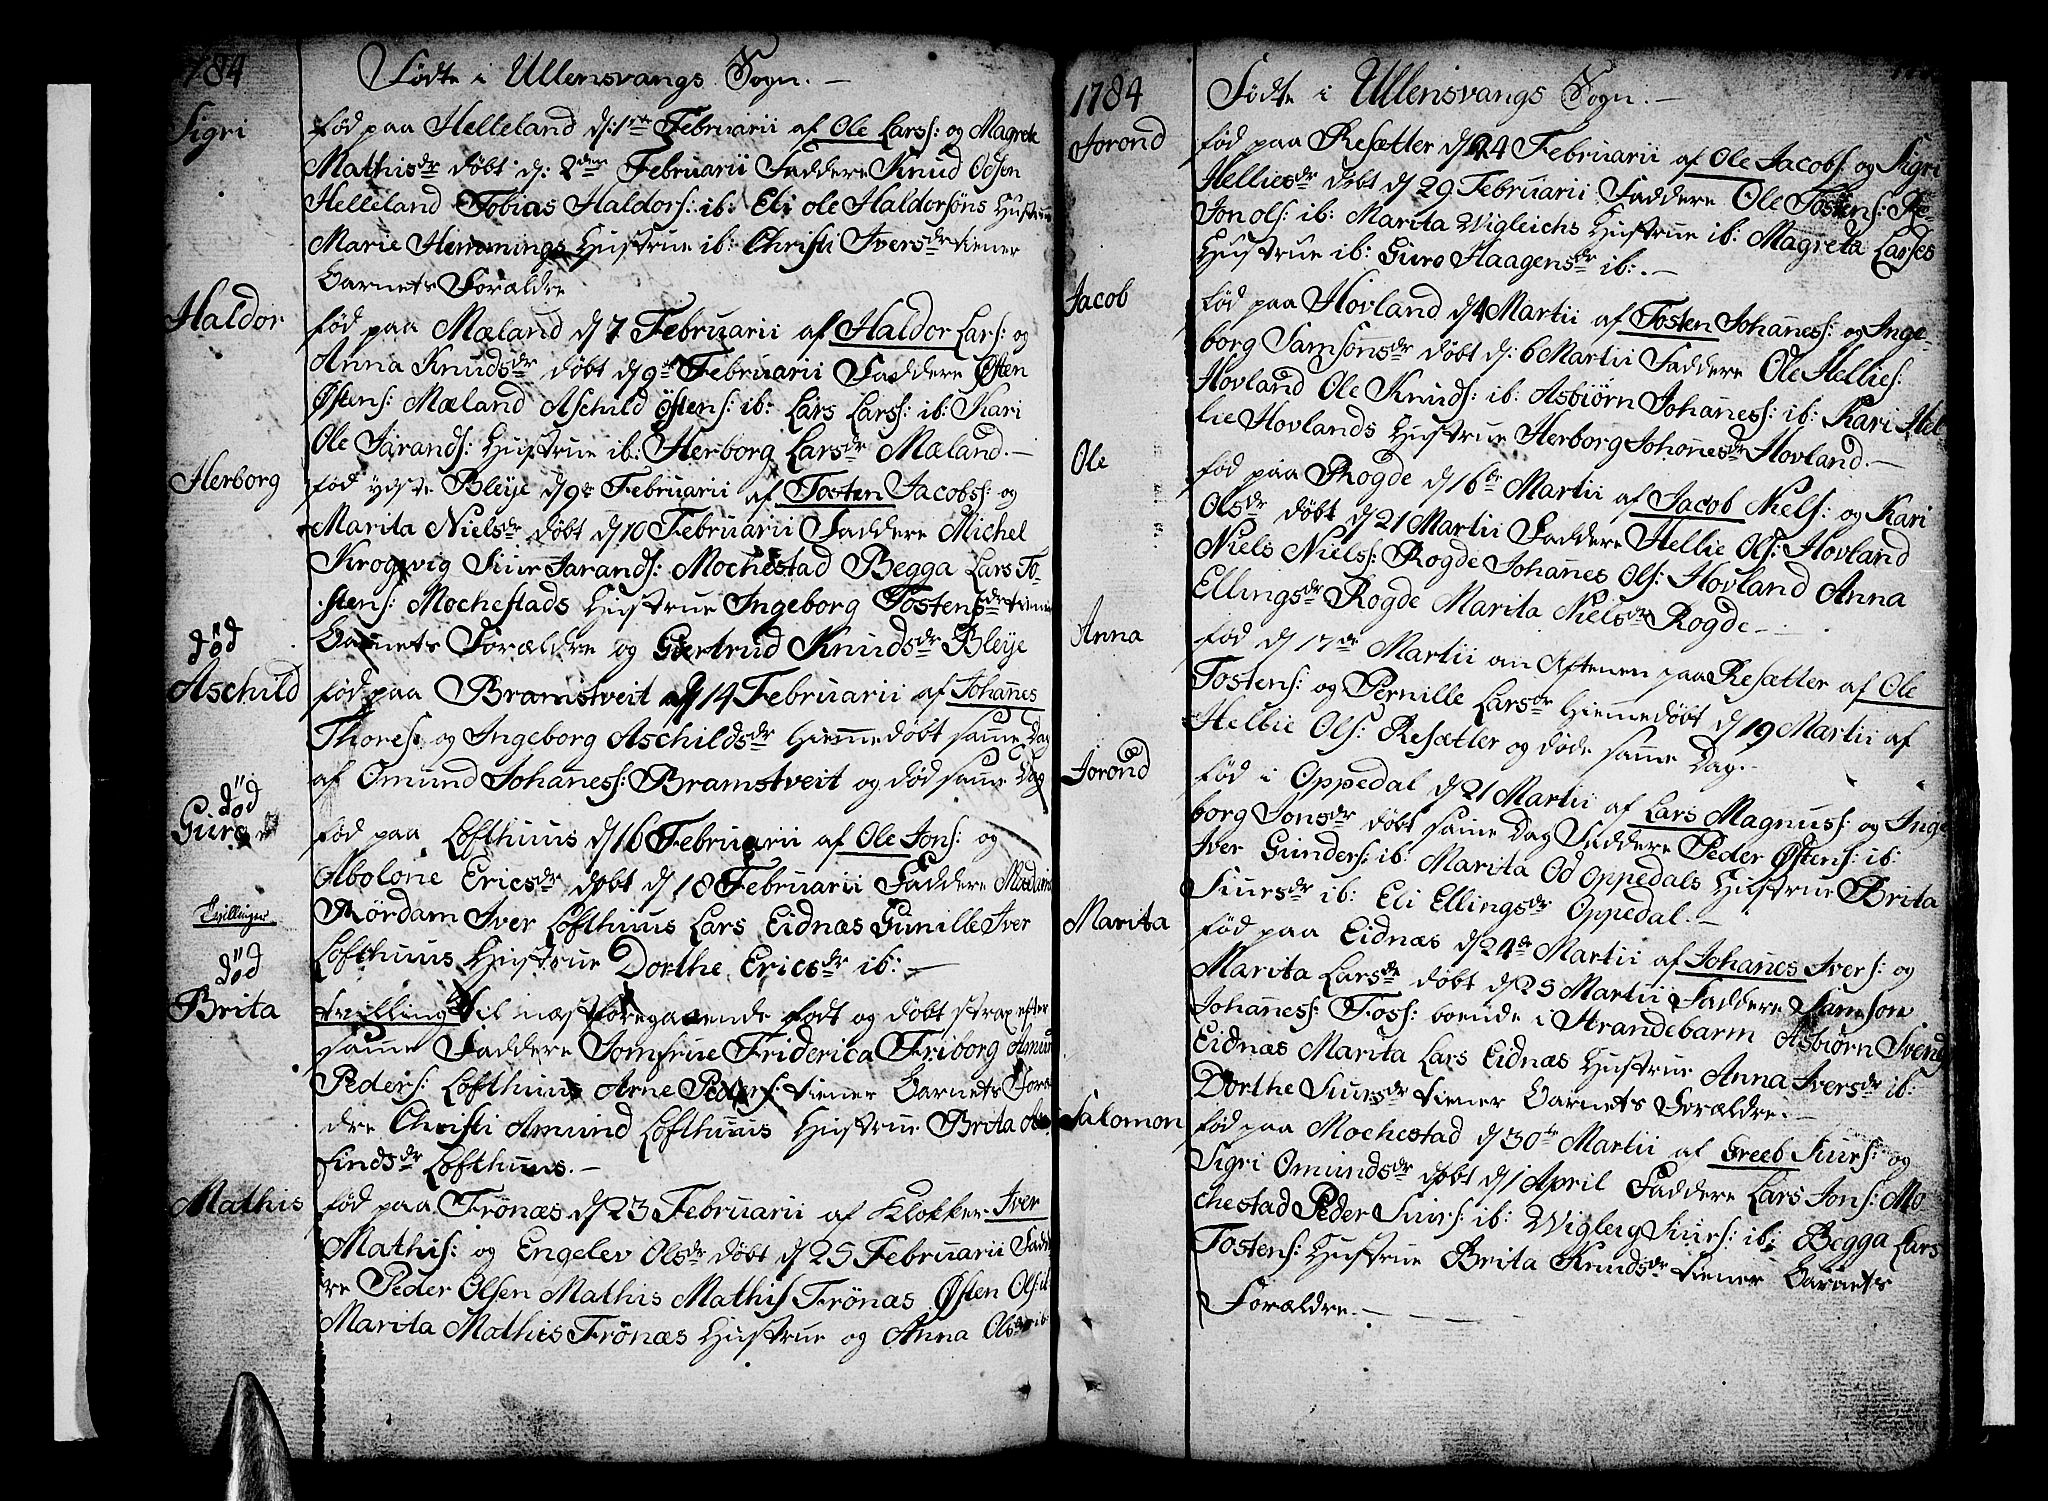 1784
Fødte i Ullensvangs Sogn.
Sigri
fød paa Helleland d: 1ste Februarii af Ole Lars: og Magrete
Mathisdr døbt d: 2den Februarii Faddere Knud Odsen
Helleland Tobias Haldors: ib: Eli ole Haldorsöns Hustrue
Marie Hemmings Hustrue ib: Christi Iversdr tiener
Barnets Forældre
Haldor
fød paa Mæland d 7 Februarii af Haldor Lars: og
Anna Knudsdr døbt d 9de Februarii Faddere Østen
Østens: Mæland Aschild Østens: ib: Lars Larss: ib: Kari
Ole Jarands: Hustrue ib: Herborg Larsdr Mæland.
Herborg
fød ydste Bleÿe d 9de Februarii af Tosten Jacobs: og
Marita Nielsdr døbt d 10 Februarii Faddere Michel
Krogvig Siur Jarands: Mochestad Begga Lars To-
stens: Mochestads Hustrue Ingeborg Tostensdr tiener
Barnets Forældre og Giertrud Knudsdr Bleÿe
död
Aschild
fød paa Bramstveit d 14 Februarii af Johannes
Thores: og Ingeborg Aschildsdr Hiemmedøbt samme Dag
af Omund Johaness: Bramstveit og død samme Dag
död
Guro
fød paa Lofthuus d 16 Februarii af Ole Jons: og
Abolone Ericsdr døbt d 18 Februarii Faddere Madame
Mördam Iver Lofthuus Lars Eidnæs Gunille Iver
Lofthuus Hustrue Dorthe Ericsdr ib:
Tvillinger
död
Brita
tvilling til næstforegaaende født og døbt strax efter
samme Faddere Jomfrue Friderica Friborg Amund
Peders: Lofthuus Arne Peders: tiener Barnets Foræl
dre Christi Amund Lofthuus Hustrue Brita
findsdr Lofthuus.
Mathis
fød paa Trönæs d 23 Februarii af Klokker Iver
Mathis: og Engelev Olsdr døbt d 25 Februarii Fadde
re Peder Olsen Mathis Mathis Trönæs Østen Ols: ib
Marita Mathis Trönæs Hustrue og Anna Olsdr ib:
1784
Fødte i Ullensvangs Sogn.
Jorond
fød paa Resætter d 24 Februarii af Ole Jacobs: og Sigri
Helliesdr døbt d 29 Februarii Faddere Ole Tostens: Re-
Jon ols: ib: Marita Wigleichs Hustrue ib: Magreta Larses
Hustrue ib: Guro Haagensdr ib:
Jacob
fød paa Hovland d 4 Martii af Tosten Johaness: og Inge-
borg Samsönsdr døbt d: 6 Martii Faddere Ole Hellies:
Hovland Ole Knuds: ib: Asbiørn Johaness: ib: Kari Hel
lie Hovlands Hustrue Herborg Johannesdr Hovland.
Ole
fød paa Rogde d 16de Martii af Jacob Niels: og Kari
Olsdr døbt d 21 Martii Faddere Hellie Ols: Hovland
Niels Niels: Rogde Johannes Ols: Hovland Anna
Ellingsdr Rogde Marita Nielsdr Rogde
Anna
fød d 17de Martii om Aftenen paa Resætter af Ole
Tostens: og Pernille Larsdr Hiemmedøbt d 19 Martii af
Helbie Ols: Resætter og døde samme Dag.
Jorond
fød i Oppedal d 21 Martii af Lars Magnus: og Inge
borg Jonsdr døbt samme Dag Faddere Peder Østens: ib:
Iver Gunders: ib: Marita Od Oppedals Hustrue Brita
Siursdr ib: Eli Ellingsdr Oppedal.
Marita
fød paa Eidnæs d 24de Martii af Johannes Ivers: og
Marita Larsdr døbt d 25 Martii Faddere Samson
Johaness: Foss: boende i Strandebarm Asbiørn Svends
Eidnæs Marita Lars Eidnæs Hustrue Anna Iversdr ib:
Dorthe Siursdr tiener Barnets Forældre.
Salomon
fød paa Mochestad d 30te Martii af Greeb Siurs: og
Sigri Omundsdr døbt d 1 April Faddere Lars Jons: Mo
chestad Peder Siurs: ib: Wigleig Siurs: ib: Begga Lars
Tostens: Hustrue Brita Knudsdr tiener Barnets
Forældre.